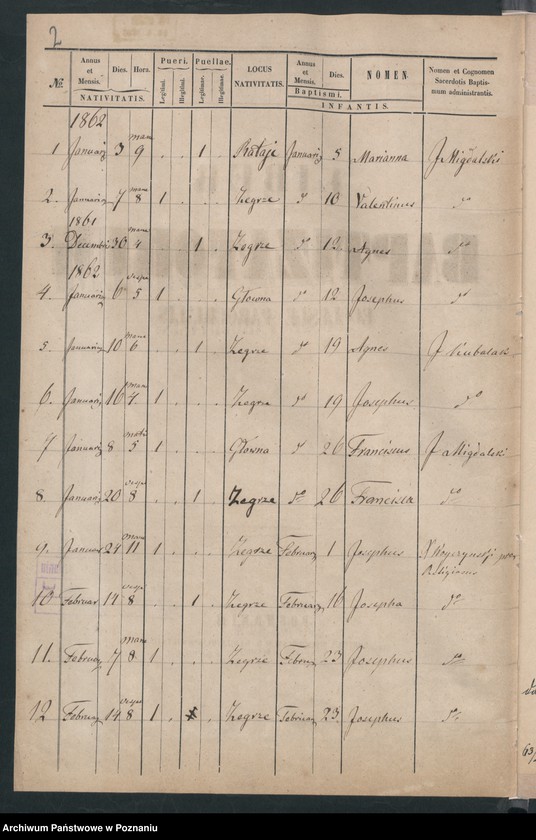 2
№ Annus et Mensis. Dies. Hora. Pueri. Puellae. LOCUS NATIVITATIS. Annus et Mensis. Dies. NOMEN Nomen et Cognomen Sacerdotis Baptismum administrantis.
Legitimi. Illegitimi. Legitimae. Illegitimae.
NATIVITATIS. Baptismi. INFANTIS.
1862
1 Januarij 3 mane 9 . . 1 . Rataje Januarij 5 Marianna J Migdalski
2. Januarij 7 mane 8 1 . . . Zegrze do 10 Valentinus do
1861
3. Decembri 30 mane 4 . . 1 . Zegrze do 12 Agnes do
1862
4. Januarij 6 vesp 5 1 . . . Głowna do 12 Josephus do
5. Januarij 10 mane 6 . . 1 . Zegrze do 19 Agnes J
6. Januarij 16 mane 4. 1 . . . Zegrze do 19 Josephus do
7 Januarij 8 5 1 . . . Głowna do 26 Franciscus J Migdalski
8. Januarij 20 vesp 8 . . 1 . Zegrze do 26 Francisca do
9. Januar 24 mane 11 1 . . . Zegrze Februarij 1 Josephus
Religiosus
10 Februar 14 vesp 8 . . 1 . Zegrze Februarij 16 Josepha do
11. Februarij 7 mane 8 1 . . . Zegrze Februarij 23 Josephus do
12 Februarij 14 vesp 8 1 . . Zegrze Februarij 23 Josephus do
Archiwum Państwowe w Poznaniu